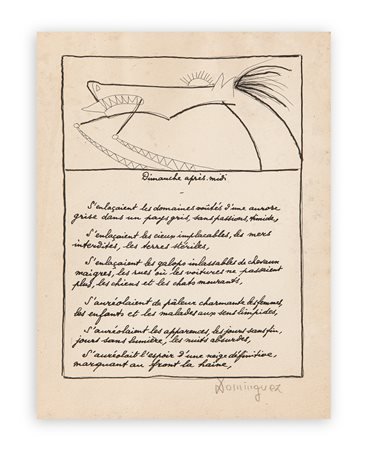 Dimanche après-midi
–
S'enlaçaient les domaines voûtés d'une aurore
grise dans un pays gris, sans passions, timide,
S'enlaçaient les cieux implacables, les mers
interdites, les terres stériles,
S'enlaçaient les galops inlassables de chevaux
maigres, les rues où les voitures ne passaient
plus, les chiens et les chats mourants,
S'auréolaient de pâleur charmante les femmes,
les enfants et les malades aux sens limpides,
S'auréolaient les apparences, les jours sans fin,
jours sans lumière, les nuits absurdes,
S'auréolait l'espoir d'une neige définitive,
marquant au front la haine,
Dominguez